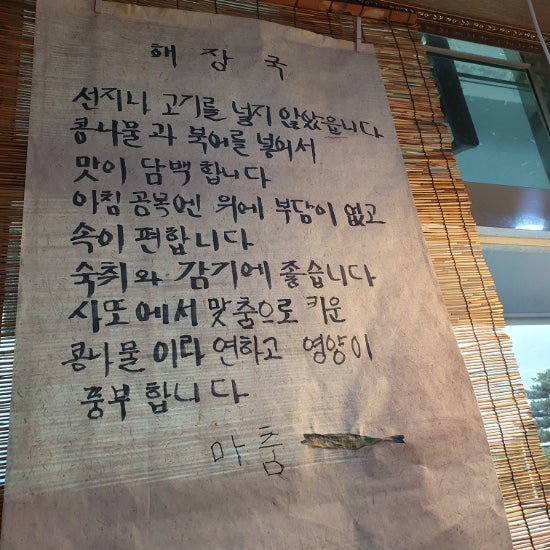 해장국
선지나 고기를 넣지 않았읍니다
콩나물과 북어를 넣어서
맛이 담백합니다
아침 공복엔 위에 부담이 없고
속이 편합니다
숙취와 감기에 좋습니다
사또에서 맞춤으로 키운
콩나물이라 연하고 영양이
풍부합니다
마춤